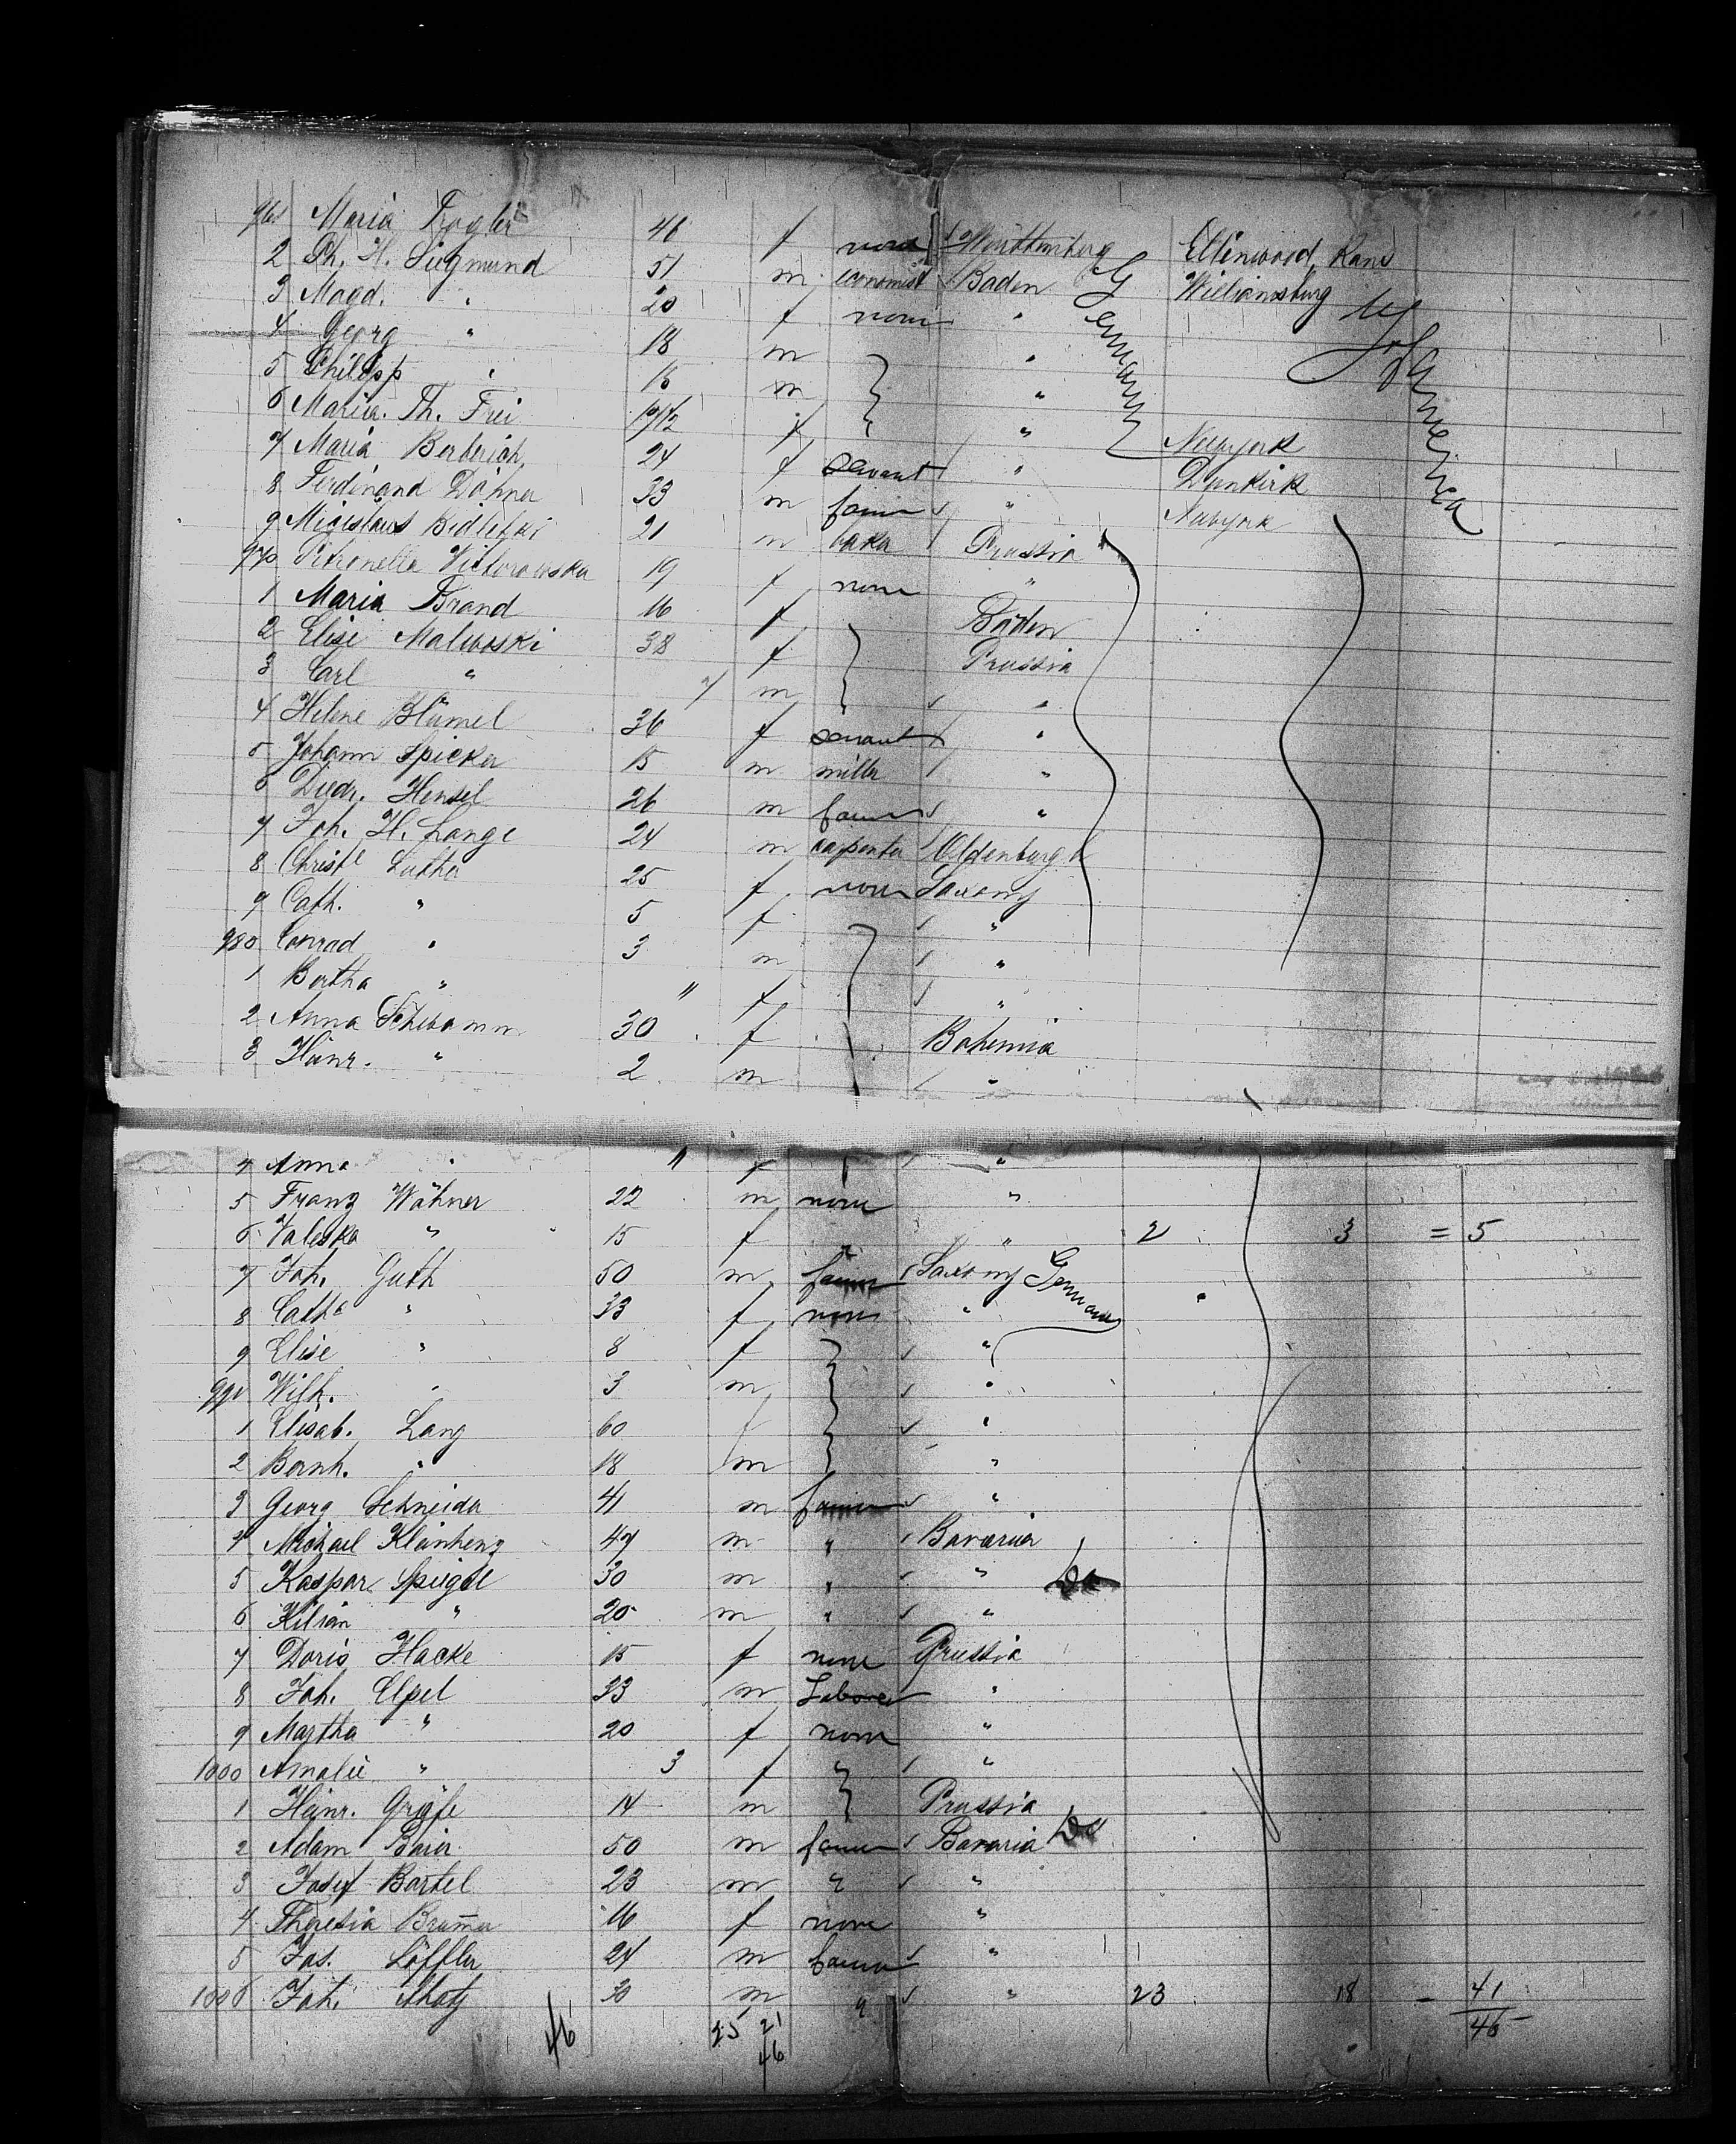 961 Maria Fogler 46 f none Württemberg Ellinwood, Kans
2 Ph. H. Siegmund 51 m economist Baden Williamsburg
3 Magd. " 20 f none "
4 Georg " 18 m "
5 Philipp " 15 m "
6 Maria Th. Frei f " " Newyork
7 Maria Berberich 24 f servant " Dunkirk
8 Ferdinand Döhner 33 m farmer " Newyork
Germany
U S of America
9 21 m baker Prussia
970 Petronella Wiktorowska 19 f none "
1 Maria Brand 16 f Baden
2 Elise Malewski 38 f Prussia
3 Carl " 7 m " "
4 Helene Blümel 36 f servant "
5 Johann Spicker 15 m miller "
6 Diedr. Hensel 26 m farmer "
7 Joh. H. Lange 24 m carpenter Oldenburg
8 Christe Luther 25 f none Saxony
9 Cath. " 5 f "
980 Conrad " 3 m "
1 Bertha " " f "
2 Anna 30 f Bohemia
3 Heinr. " 2 m "
4 Anna " " f "
5 Franz Wöhner 22 m none "
6 Valeska " 15 f " " 2 3 = 5
7 Joh. Guth 50 m farmer Saxony Germany
8 Cathe " 33 f none "
9 Elise " 8 f "
990 Wilh. " 3 m "
1 Elisab. Lang 60 f "
2 Bernh. " 18 m "
3 Georg Schneider 41 m farmer "
4 Michael Kleinhenz 47 m " Bavaria
5 Kaspar Spiegel 30 m " " Do
6 Kilian " 20 m " "
7 Doris Hacke 15 f none Prussia
8 Joh. Elpel 33 m Laborer "
9 Martha " 20 f none "
1000 Amalie " 3 f " "
1 Heinr. Gräfe 14 m Prussia
2 Adam Baier 50 m farmer Bavaria Do
3 Josef Bartel 23 m " "
4 Theresia Brum̄er 16 f none "
5 Jos. Löffler 24 m farmer "
1006 Joh. 30 m " " 23 18 — 41
46 25 21 46
46